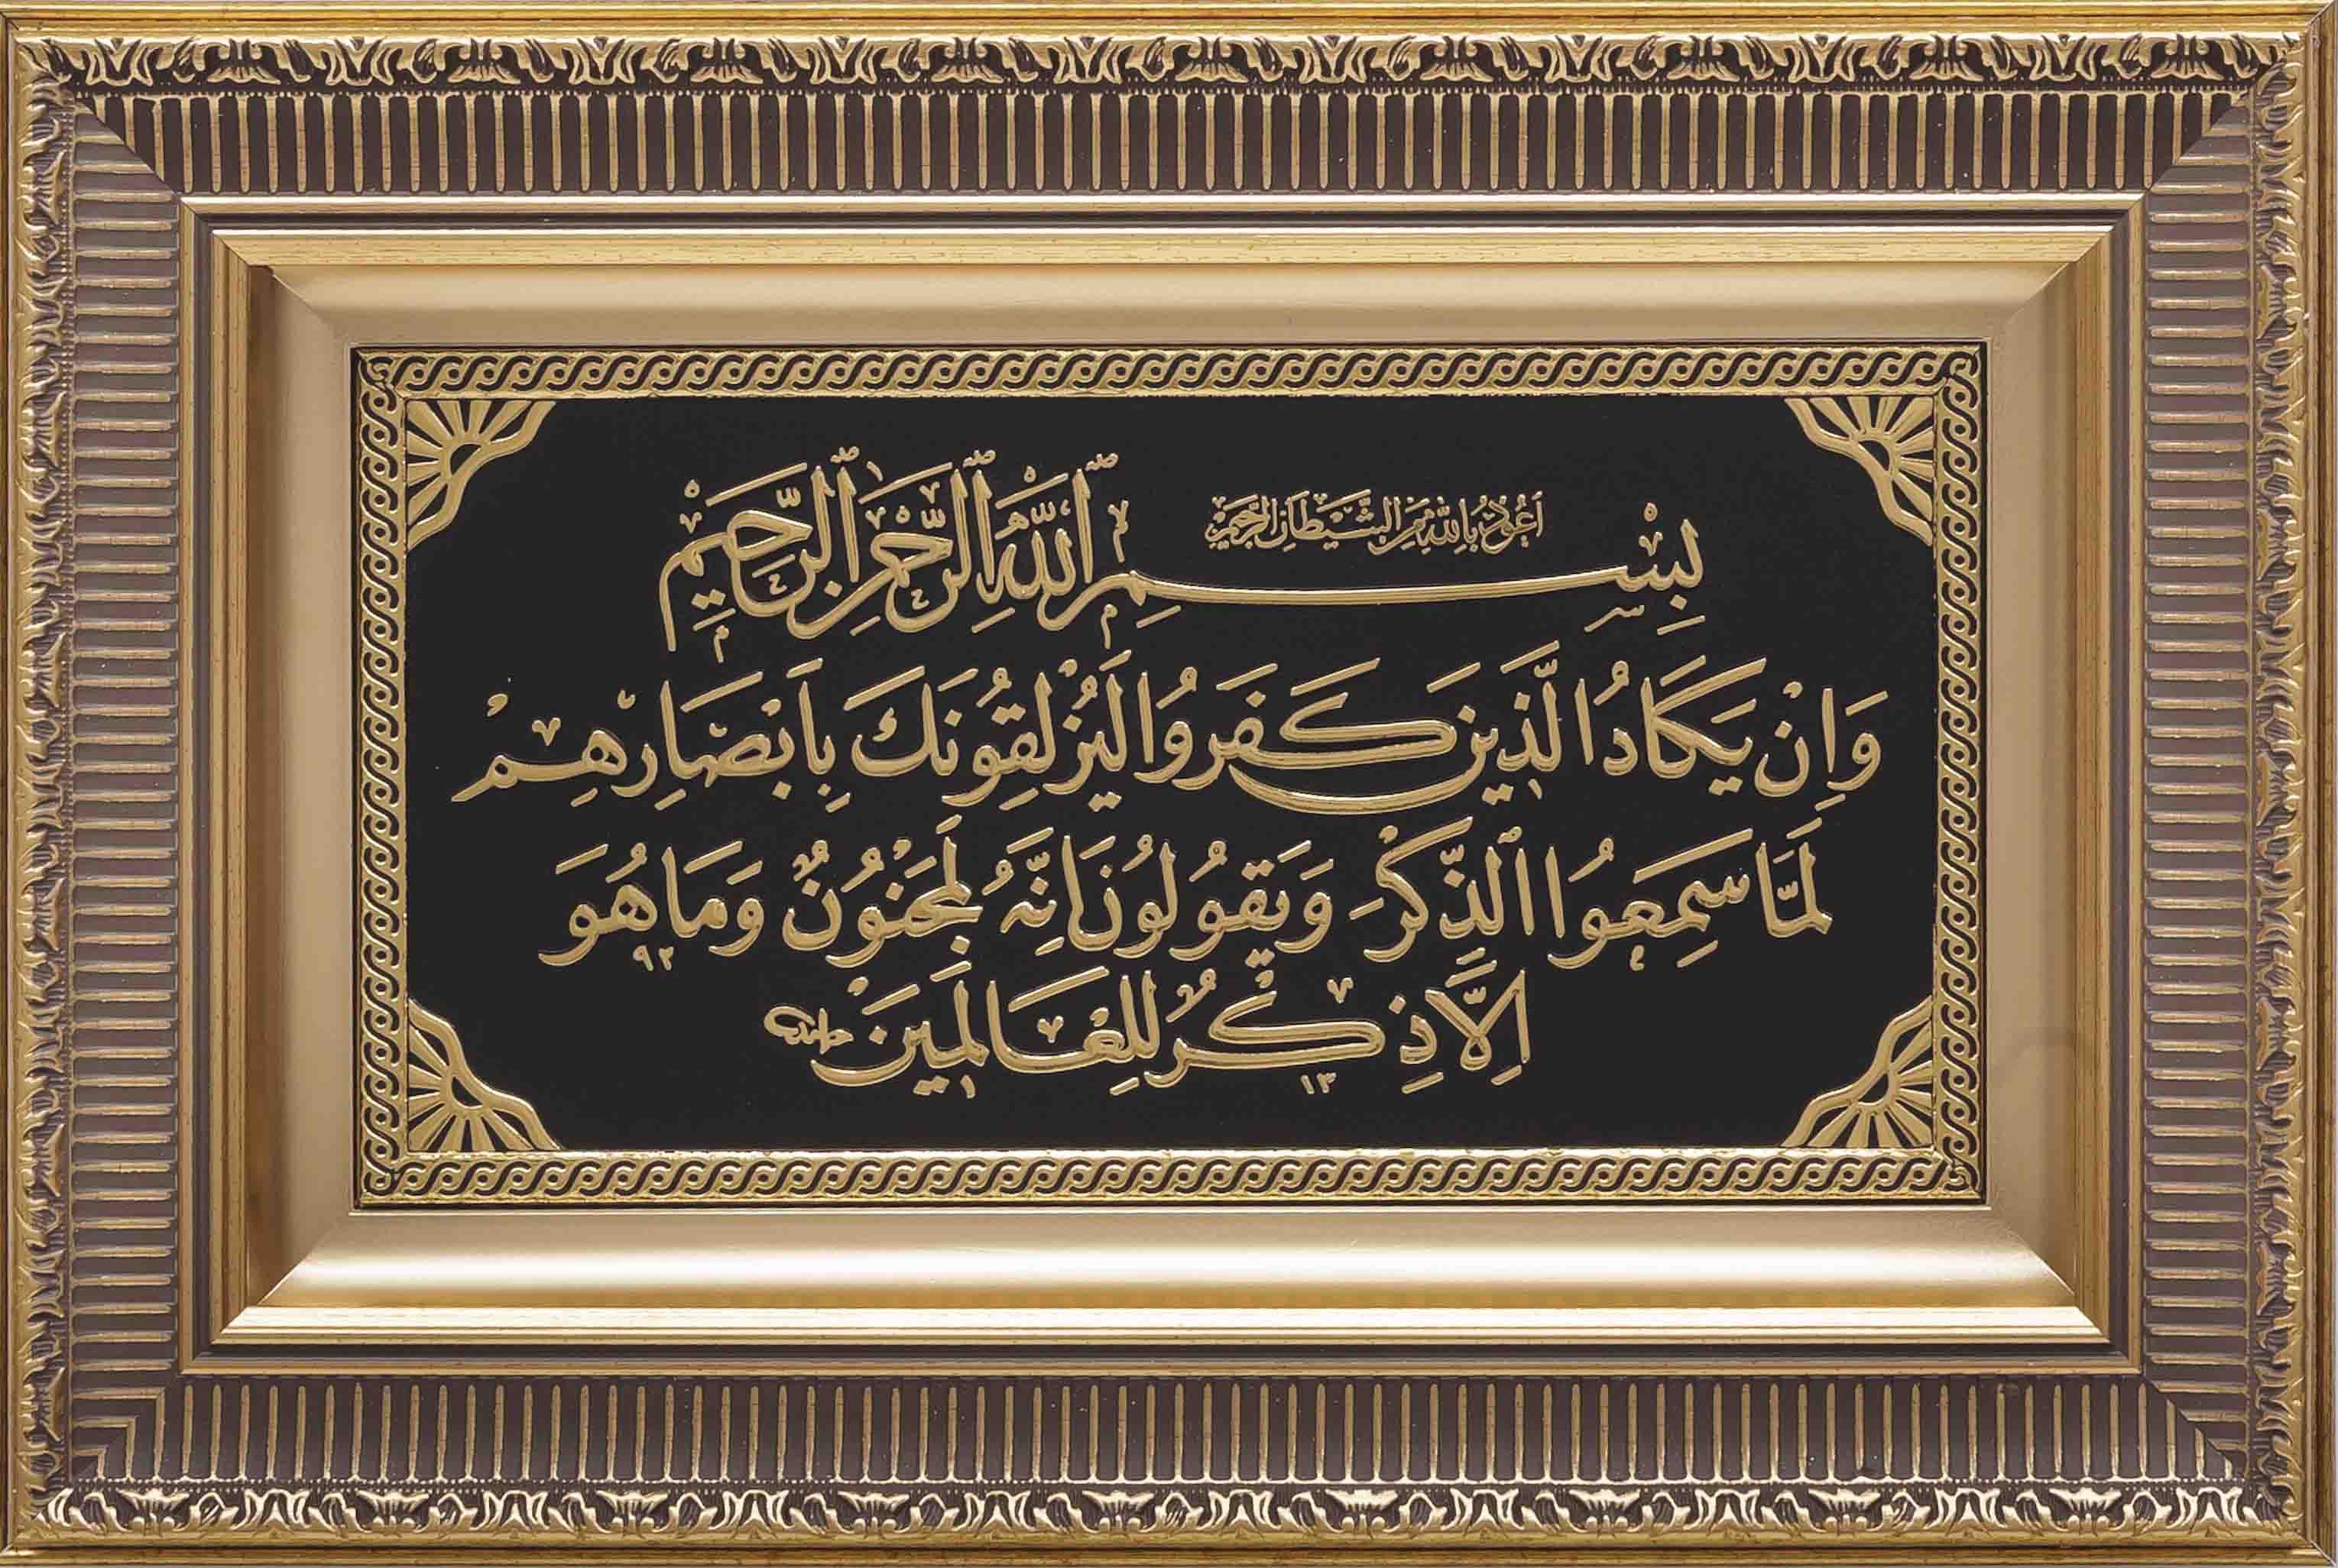 اَعُوذُ بِاللّٰهِ مِنَ الشَّيْطَانِ الرَّجِيمِ
بِسْمِ اللّٰهِ الرَّحْمٰنِ الرَّحِيمِ
وَاِنْ يَكَادُ الَّذِينَ كَفَرُوا لَيُزْلِقُونَكَ بِاَبْصَارِهِمْ
لَمَّا سَمِعُوا الذِّكْرَ وَيَقُولُونَ اِنَّهُ لَمَجْنُونٌ وَمَا هُوَ
٩٢
اِلَّا ذِكْرٌ لِلْعَالَمِينَ
١٣